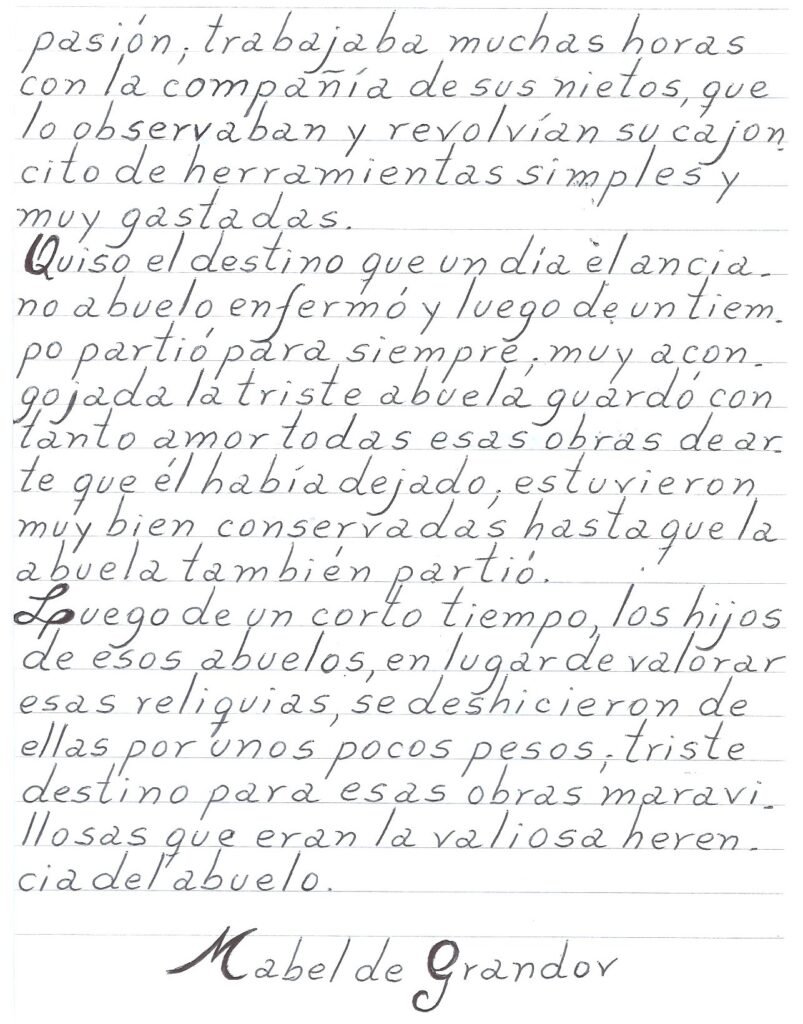 pasión; trabajaba muchas horas
con la compañía de sus nietos, que
lo observaban y revolvían su cajon
cito de herramientas simples y
muy gastadas.
Quiso el destino que un día el ancia-
no abuelo enfermó y luego de un tiem-
po partió para siempre; muy acon-
gojada la triste abuela guardó con
tanto amor todas esas obras de ar-
te que él había dejado; estuvieron
muy bien conservadas hasta que la
abuela también partió.
Luego de un corto tiempo, los hijos
de esos abuelos, en lugar de valorar
esas reliquias, se deshicieron de
ellas por unos pocos pesos; triste
destino para esas obras maravi-
llosas que eran la valiosa heren-
cia del abuelo.
Mabel de Grandov